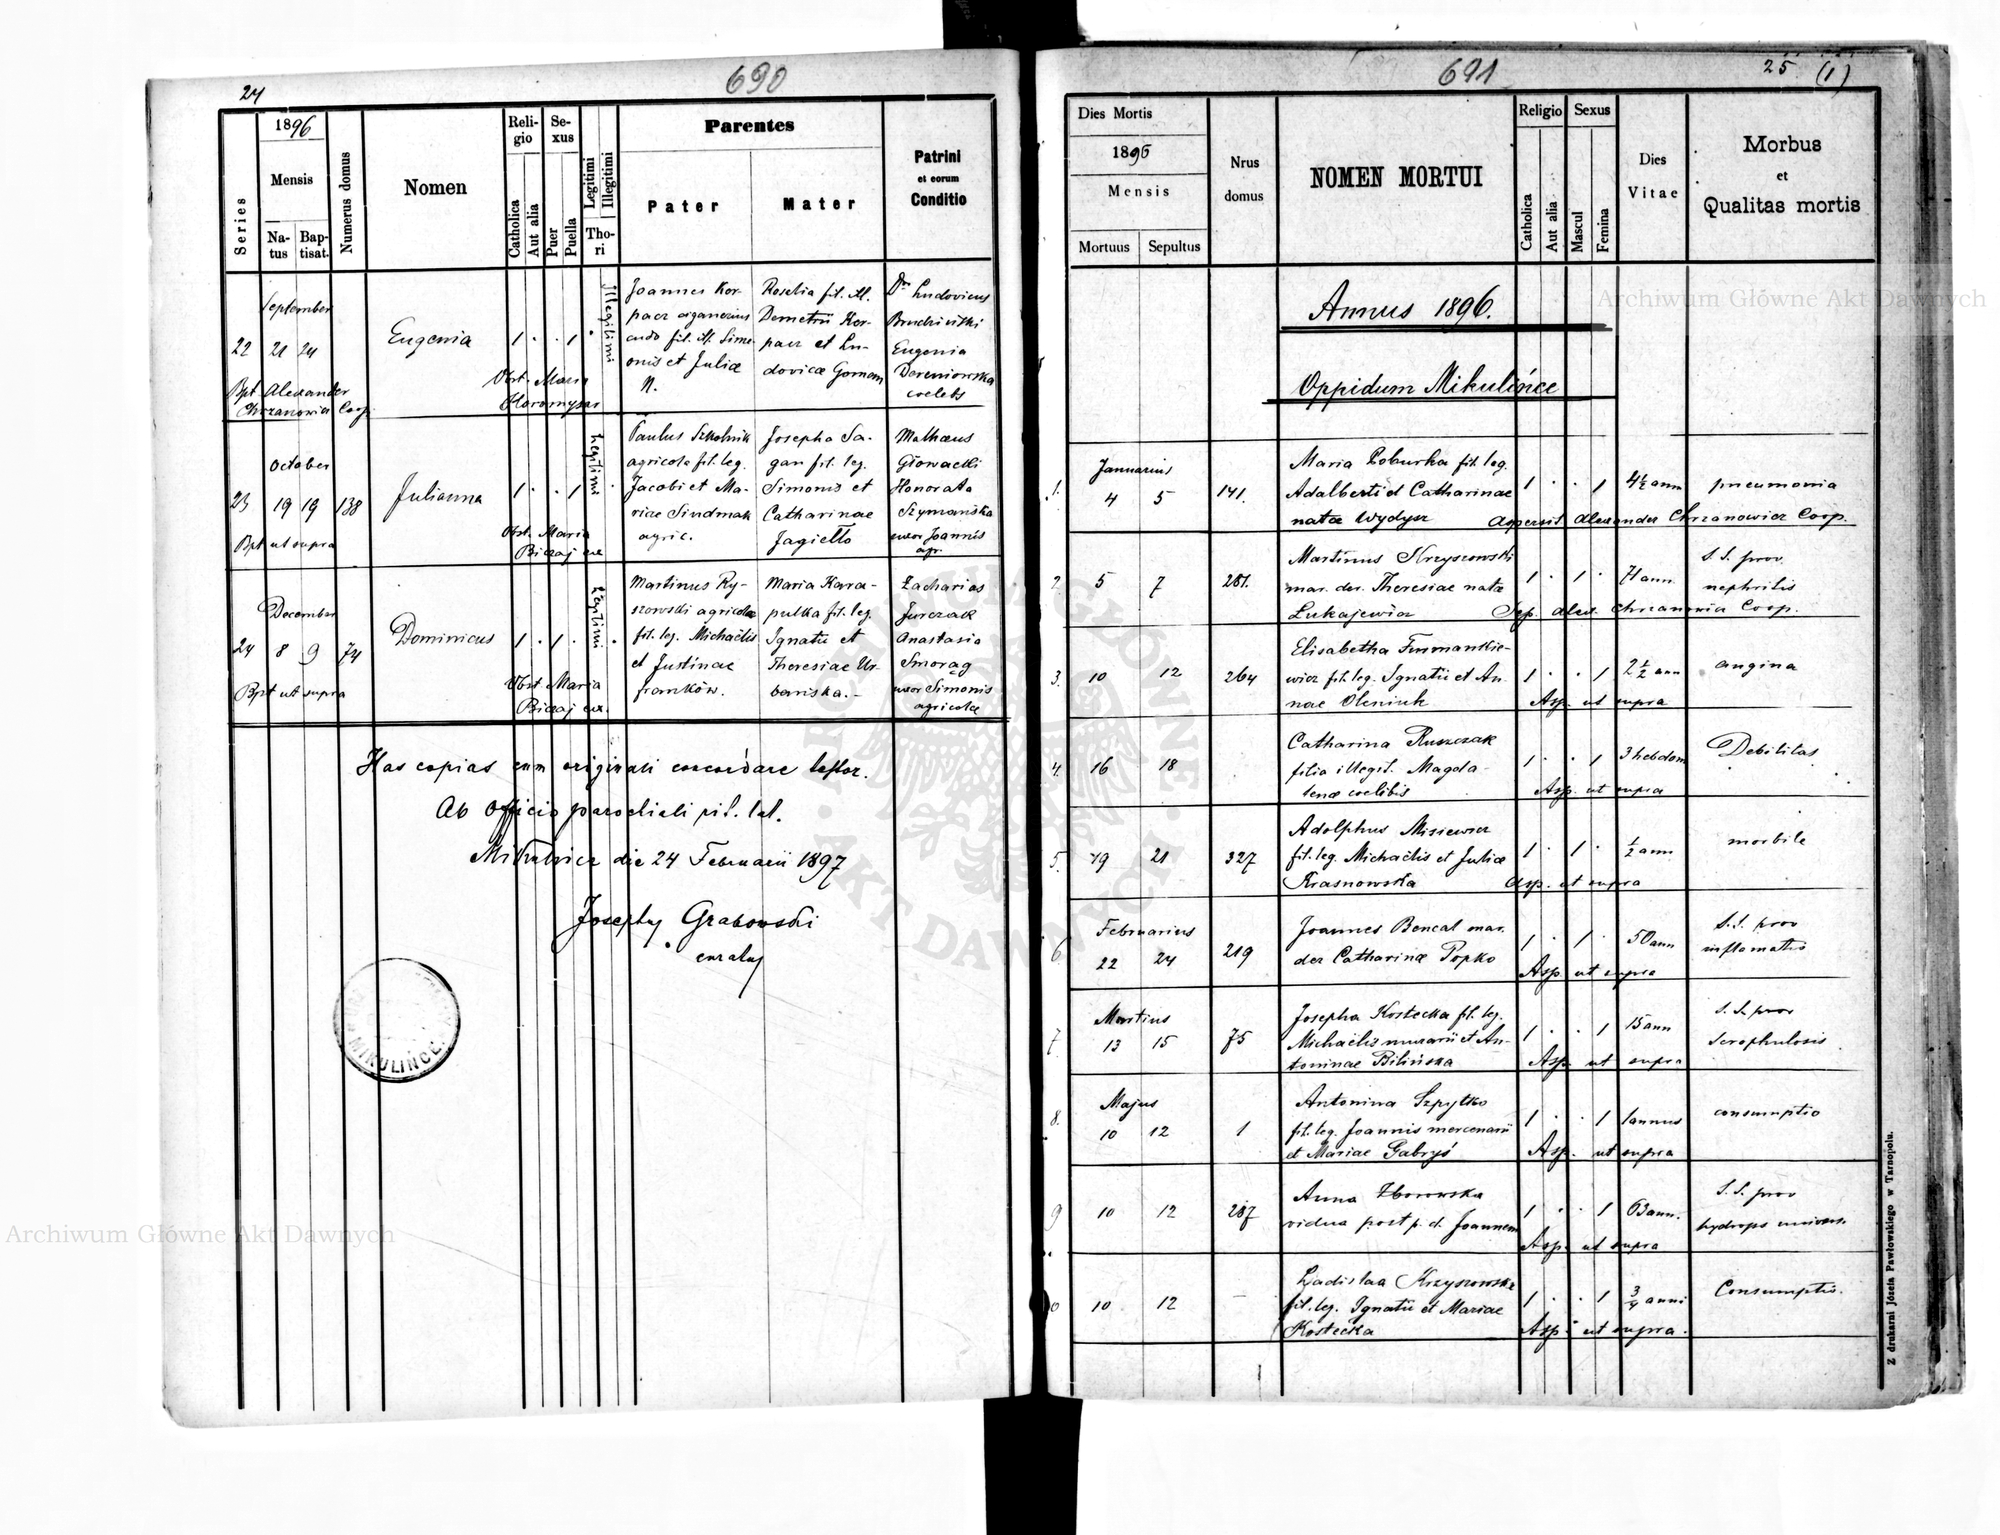 24
690
Series
1896
Mensis
Na-
tus
Bap-
tisat.
Numerus domus
Nomen
Reli-
gio
Catholica
Aut alia
Se-
xus
Puer
Puella
Legitimi
Illegitimi
Tho-
ri
Parentes
Pater
Mater
Patrini
et eorum
Conditio
September
22 21 24
Bpt. Alexander
Chrzanowicz Coop.
Eugenia
1 . . 1 .
Obst. Maria
Illegitimi
Joannes Kor-
pacz
fil. ill. Simo-
onis et Juliae
N.
Rosalia fil. ill.
Demetrii Kor-
pacz et Lu-
dovicae
Dr Ludovicus
Eugenia
Dereniowska
coelebs
October
23 19 19 138
Bpt ut supra
Julianna
1 . . 1 .
Obst. Maria
Legitimi
Paulus Szkolnik
agricola fil. leg.
Jacobi et Ma-
riae Sindmak
agric.
Josepha Sa-
gan fil. leg.
Simonis et
Catharinae
Jagiełło
Mathaeus
Głowacki
Honorata
Szymańska
uxor Joannis
agr.
December
24 8 9 74
Bpt ut supra
Dominicus
1 . 1 . .
Obst. Maria
Legitimi
Martinus Ry-
szowski agricola
fil. leg. Michaëlis
et Justinae
franków.
Maria Kara-
pulka fil. leg.
Ignatii et
Theresiae Ur-
bańska.-
Zacharias
Jurczak
Anastasia
Smorag
uxor Simonis
agricolae
Has copias cum originali concordare testor.
Ab officio parochiali rit. lat.
Mikulińce die 24 Februarii 1897
Josephus Grabowski
curatus
MIKULIŃCE.
691
25 (1)
Dies Mortis
1896
Mensis
Mortuus
Sepultus
Nrus
domus
NOMEN MORTUI
Religio
Catholica
Aut alia
Sexus
Mascul
Femina
Dies
Vitae
Morbus
et
Qualitas mortis
Annus 1896.
Oppidum Mikulińce
Januarius
1. 4 5 141.
Maria Poburka fil. leg.
Adalberti et Catharinae
natae Wydysz
1 . . 1 4½ ann pneumonia
Aspersit Alexander Chrzanowicz Coop.
2. 5 7 281.
Martinus Krzyszowski
mar. der. Theresiae natae
Łukajewicz
1 . 1 . 71 ann.
S. S. prov.
nephritis
Sep. Alex. Chrzanowicz Coop.
3. 10 12 264
Elisabetha Furmankie-
wicz fil. leg. Ignatii et An-
nae Oleniuk
1 . . 1 2½ ann angina
Asp. ut supra
4. 16 18
Catharina Ruszczak
filia illegit. Magda-
lenae coelibis
1 . . 1 3 hebdom Debilitas
Asp. ut supra
5. 19 21 327
Adolphus Misiewicz
fil. leg. Michaëlis et Juliae
Krasnowska
1 . 1 . ½ ann morbile
Asp. ut supra
Februarius
6. 22 24 219
Joannes Bencal mar.
der Catharinae Popko
1 . 1 . 50 ann
S. S. prov
inflamatio
Asp. ut supra
Martius
7. 13 15 75
Josepha Kostecka fil. leg.
Michaëlis murarii et An-
toninae Bilińska
1 . . 1 15 ann
S. S. prov
Scrophulosis
Asp. ut supra
Majus
8. 10 12 1
Antonina Szpytko
fil. leg. Joannis mercenarii
et Mariae Gabryś
1 . . 1 1 annus consumptio
Asp. ut supra
9 10 12 287
Anna Zborowska
vidua post p. d. Joannem
1 . . 1 63 ann.
S. S. prov
hydrops univers.
Asp. ut supra
10 12 -
Ladislaa Krzyszowska
fil. leg. Ignatii et Mariae
Kostecka
1 . . 1 ¾ anni Consumptio.
Asp. ut supra.
Z drukarni Józefa Pawłowskiego w Tarnopolu.
Archiwum Główne Akt Dawnych
Archiwum Główne Akt Dawnych
ARCHIWUM GŁÓWNE AKT DAWNYCH